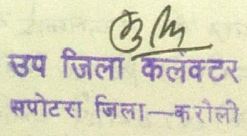 उप जिला कलक्टर
सपोटरा जिला—करौली